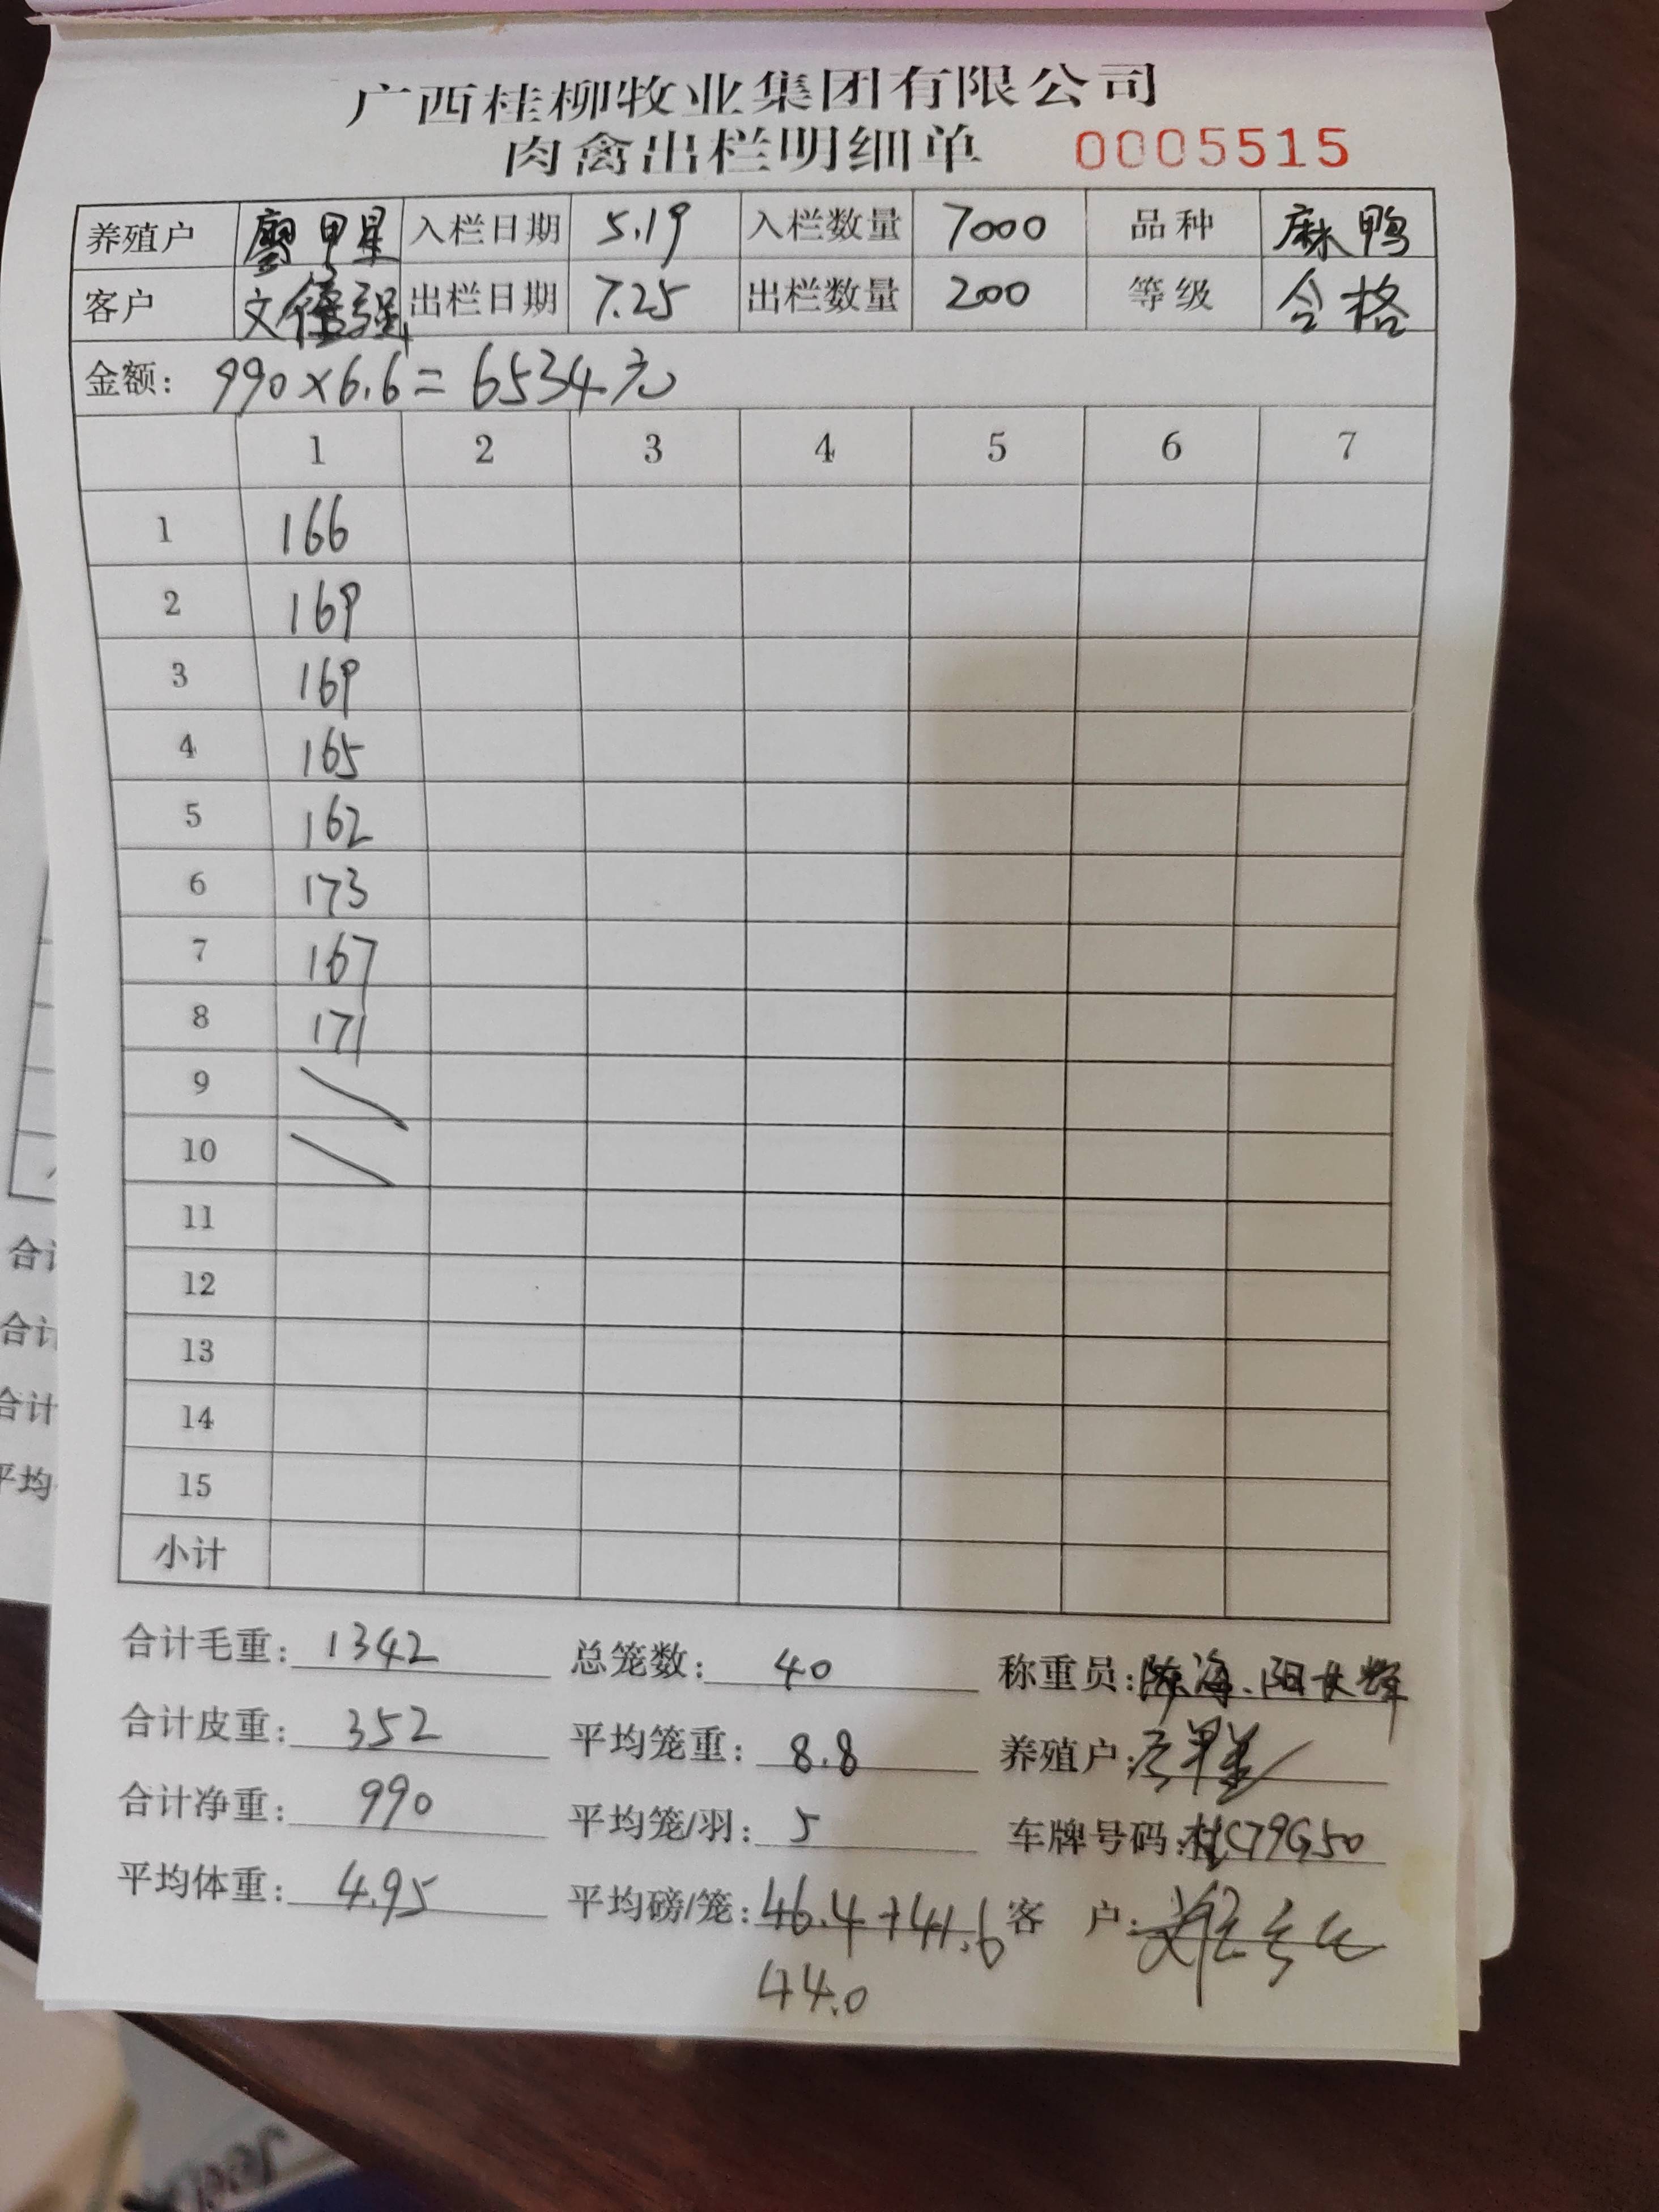 广西桂柳牧业集团有限公司
肉禽出栏明细单 0005515
养殖户 廖甲星 入栏日期 5.19 入栏数量 7000 品种 麻鸭
客户 文 强 出栏日期 7.25 出栏数量 200 等级 合格
金额: 990×6.6=6534元
1 2 3 4 5 6 7
1 166
2 169
3 169
4 165
5 162
6 173
7 167
8 171
9
10
11
12
13
14
15
小计
合计毛重: 1342 总笼数: 40 称重员: 陈海、阳
合计皮重: 352 平均笼重: 8.8 养殖户:
合计净重: 990 平均笼/羽: 5 车牌号码: 桂C79G50
平均体重: 4.95 平均磅/笼: 46.4+41.6 客 户:
44.0
合计
合计
合计
平均